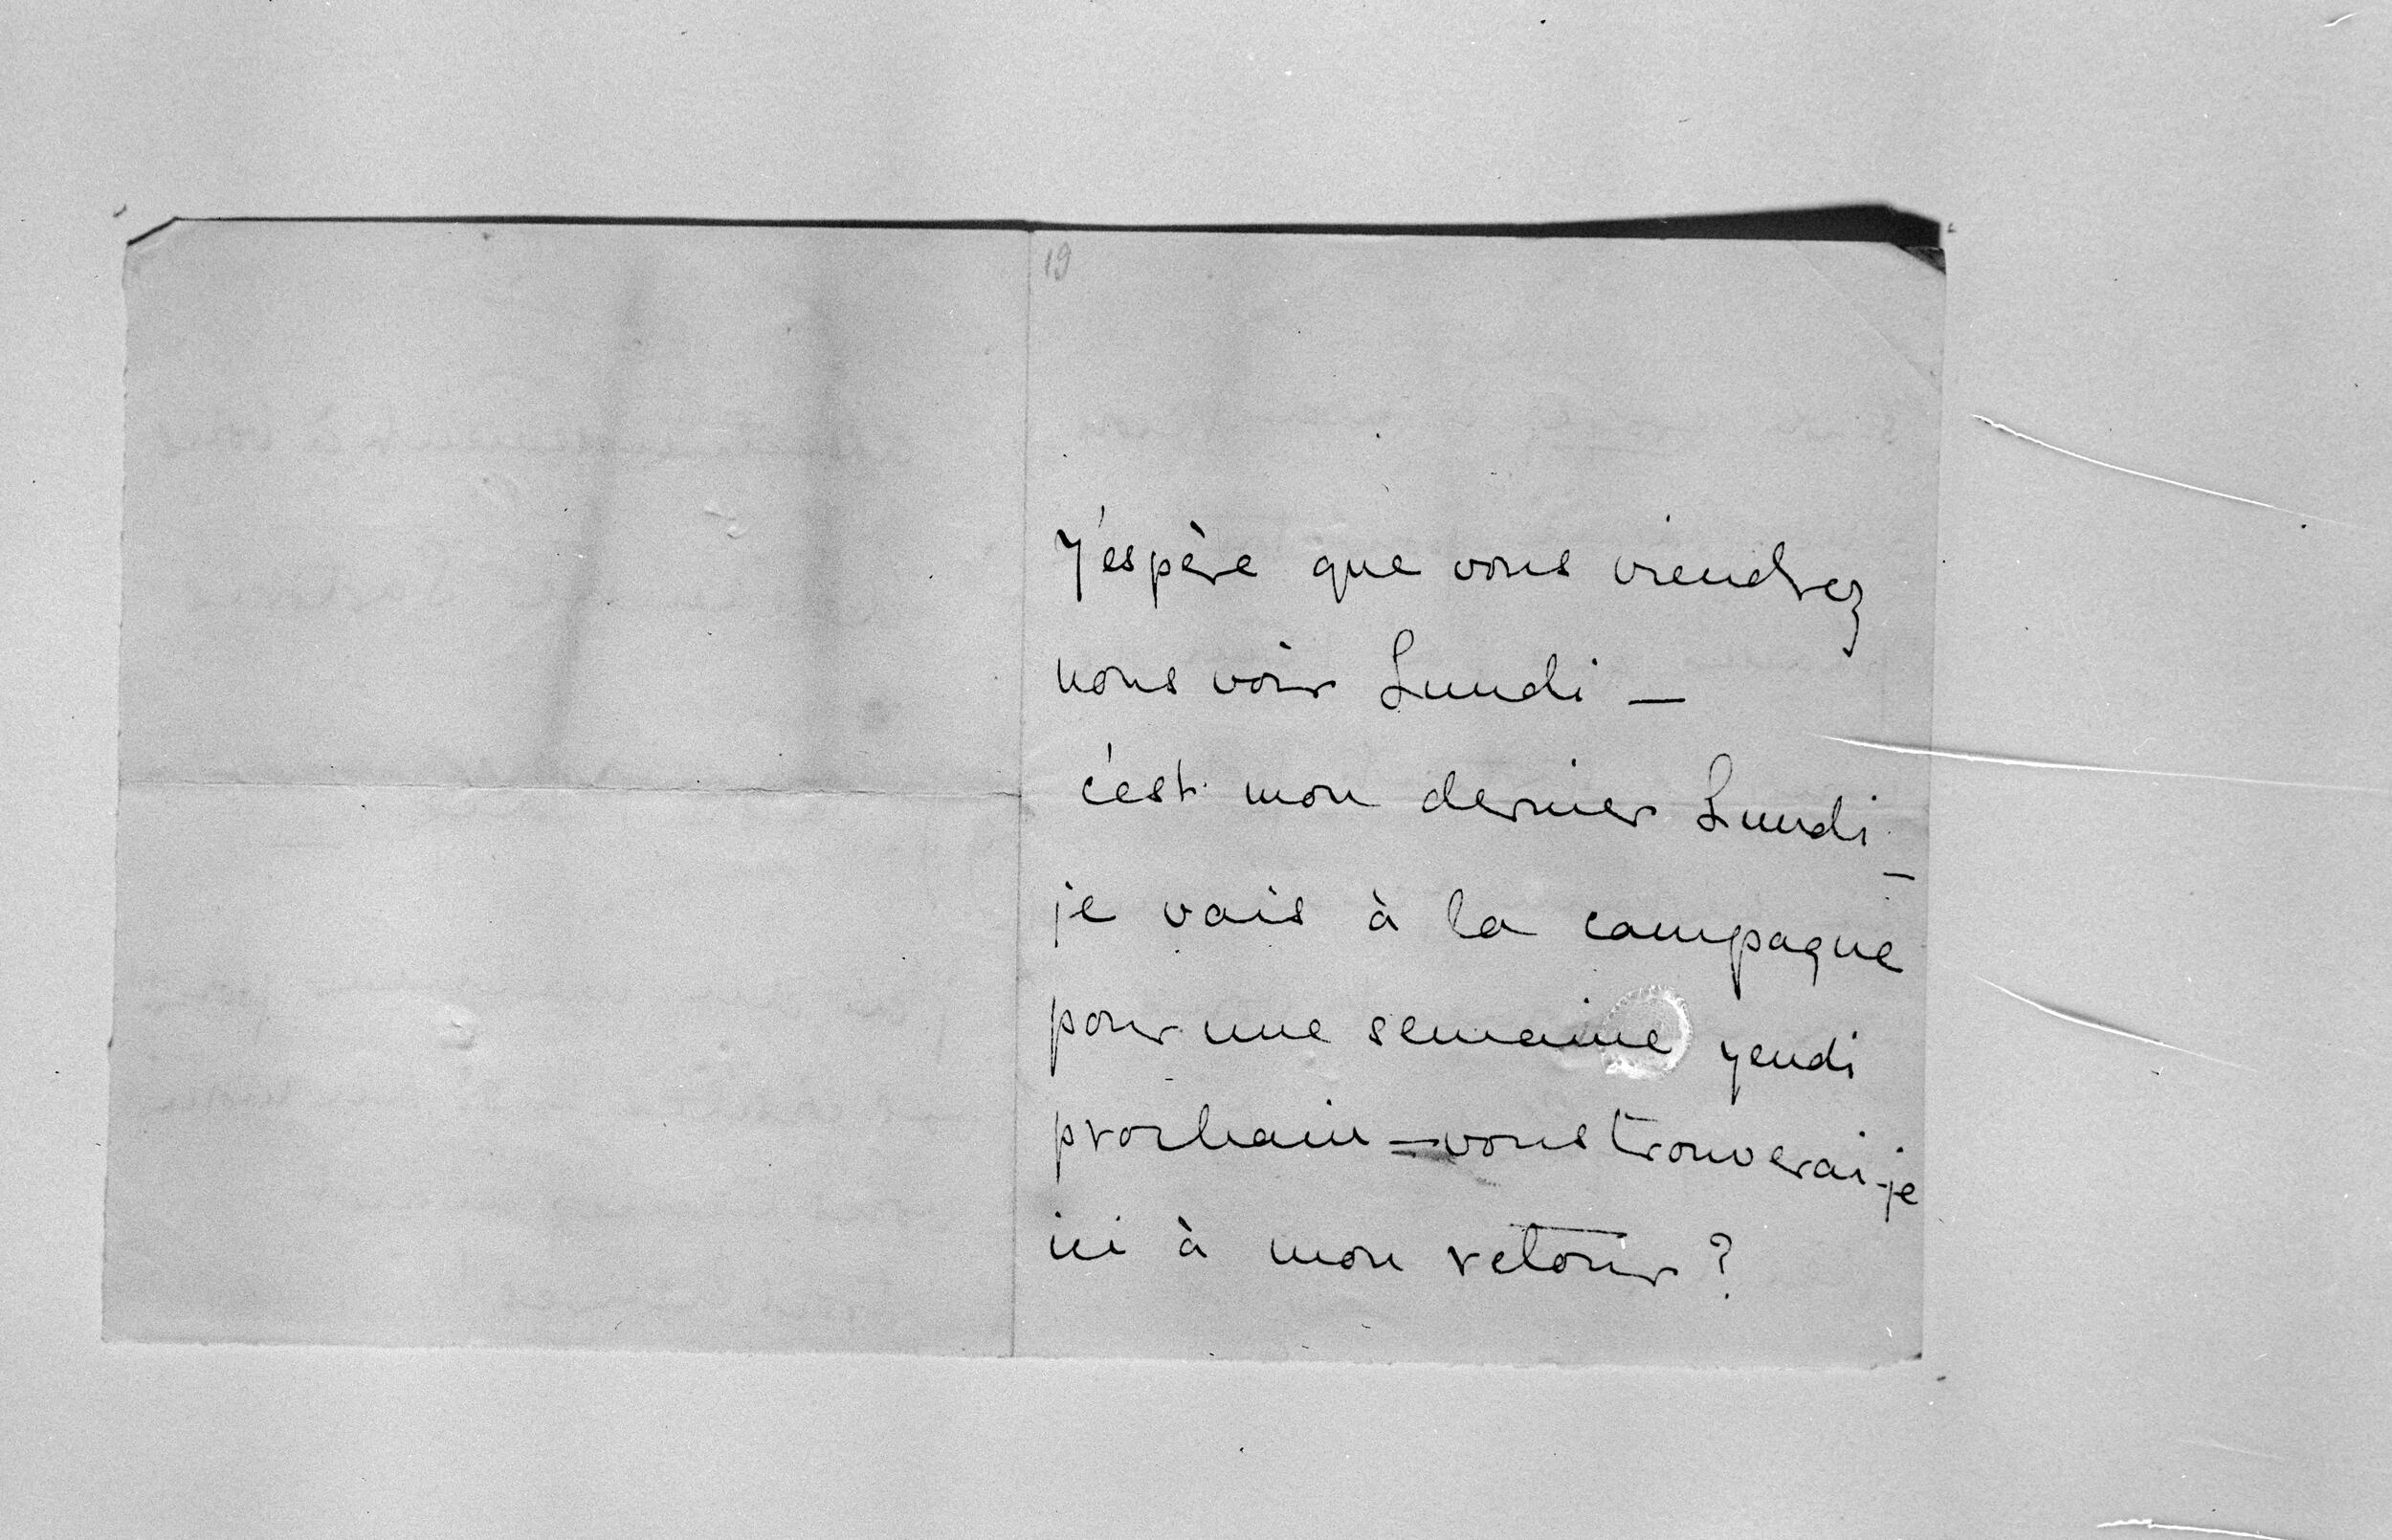 19
J'espère que vous viendrez
nous voir Lundi —
c'est mon dernier Lundi —
je vais à la campagne
pour une semaine jeudi
prochain — vous trouverai-je
ici à mon retour ?